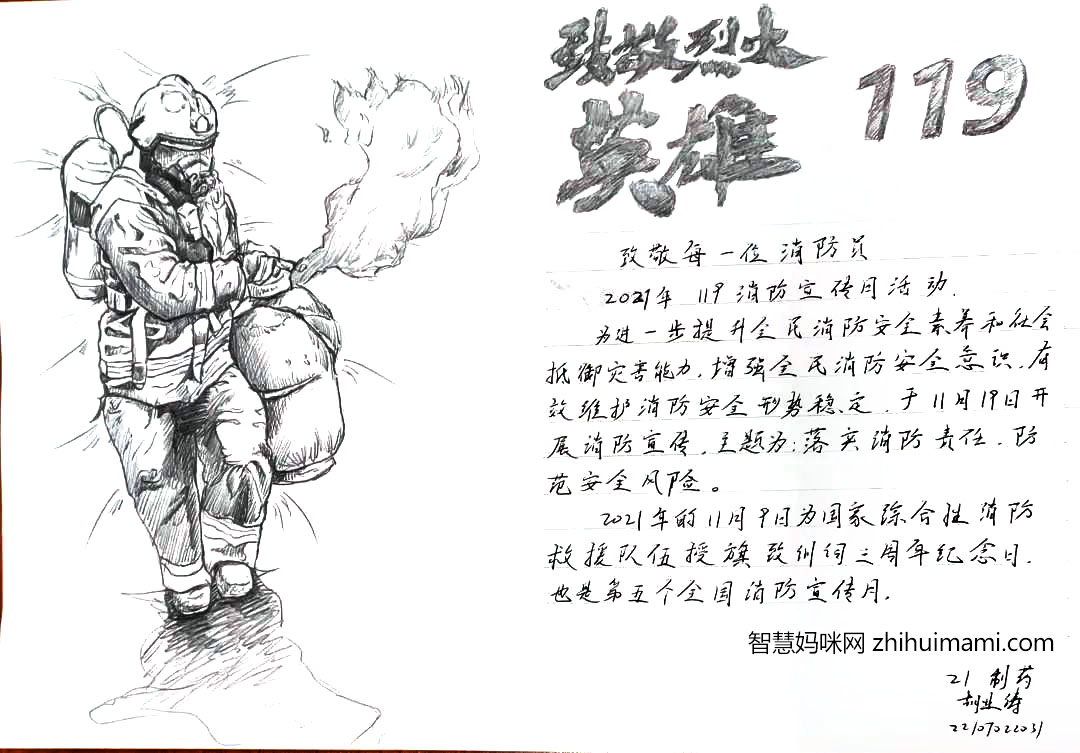 致敬烈火
英雄
119
致敬每一位消防员
2021年 119消防宣传月活动.
为进一步提升全民消防安全素养和社会
抵御灾害能力,增强全民消防安全意识,有
效维护消防安全形势稳定,于11月19日开
展消防宣传,主题为:落实消防责任,防
范安全风险。
2021年的11月9日为国家综合性消防
救援队伍授旗致训词三周年纪念日.
也是第五个全国消防宣传月.
智慧妈咪网 zhihuimami.com
21 制药